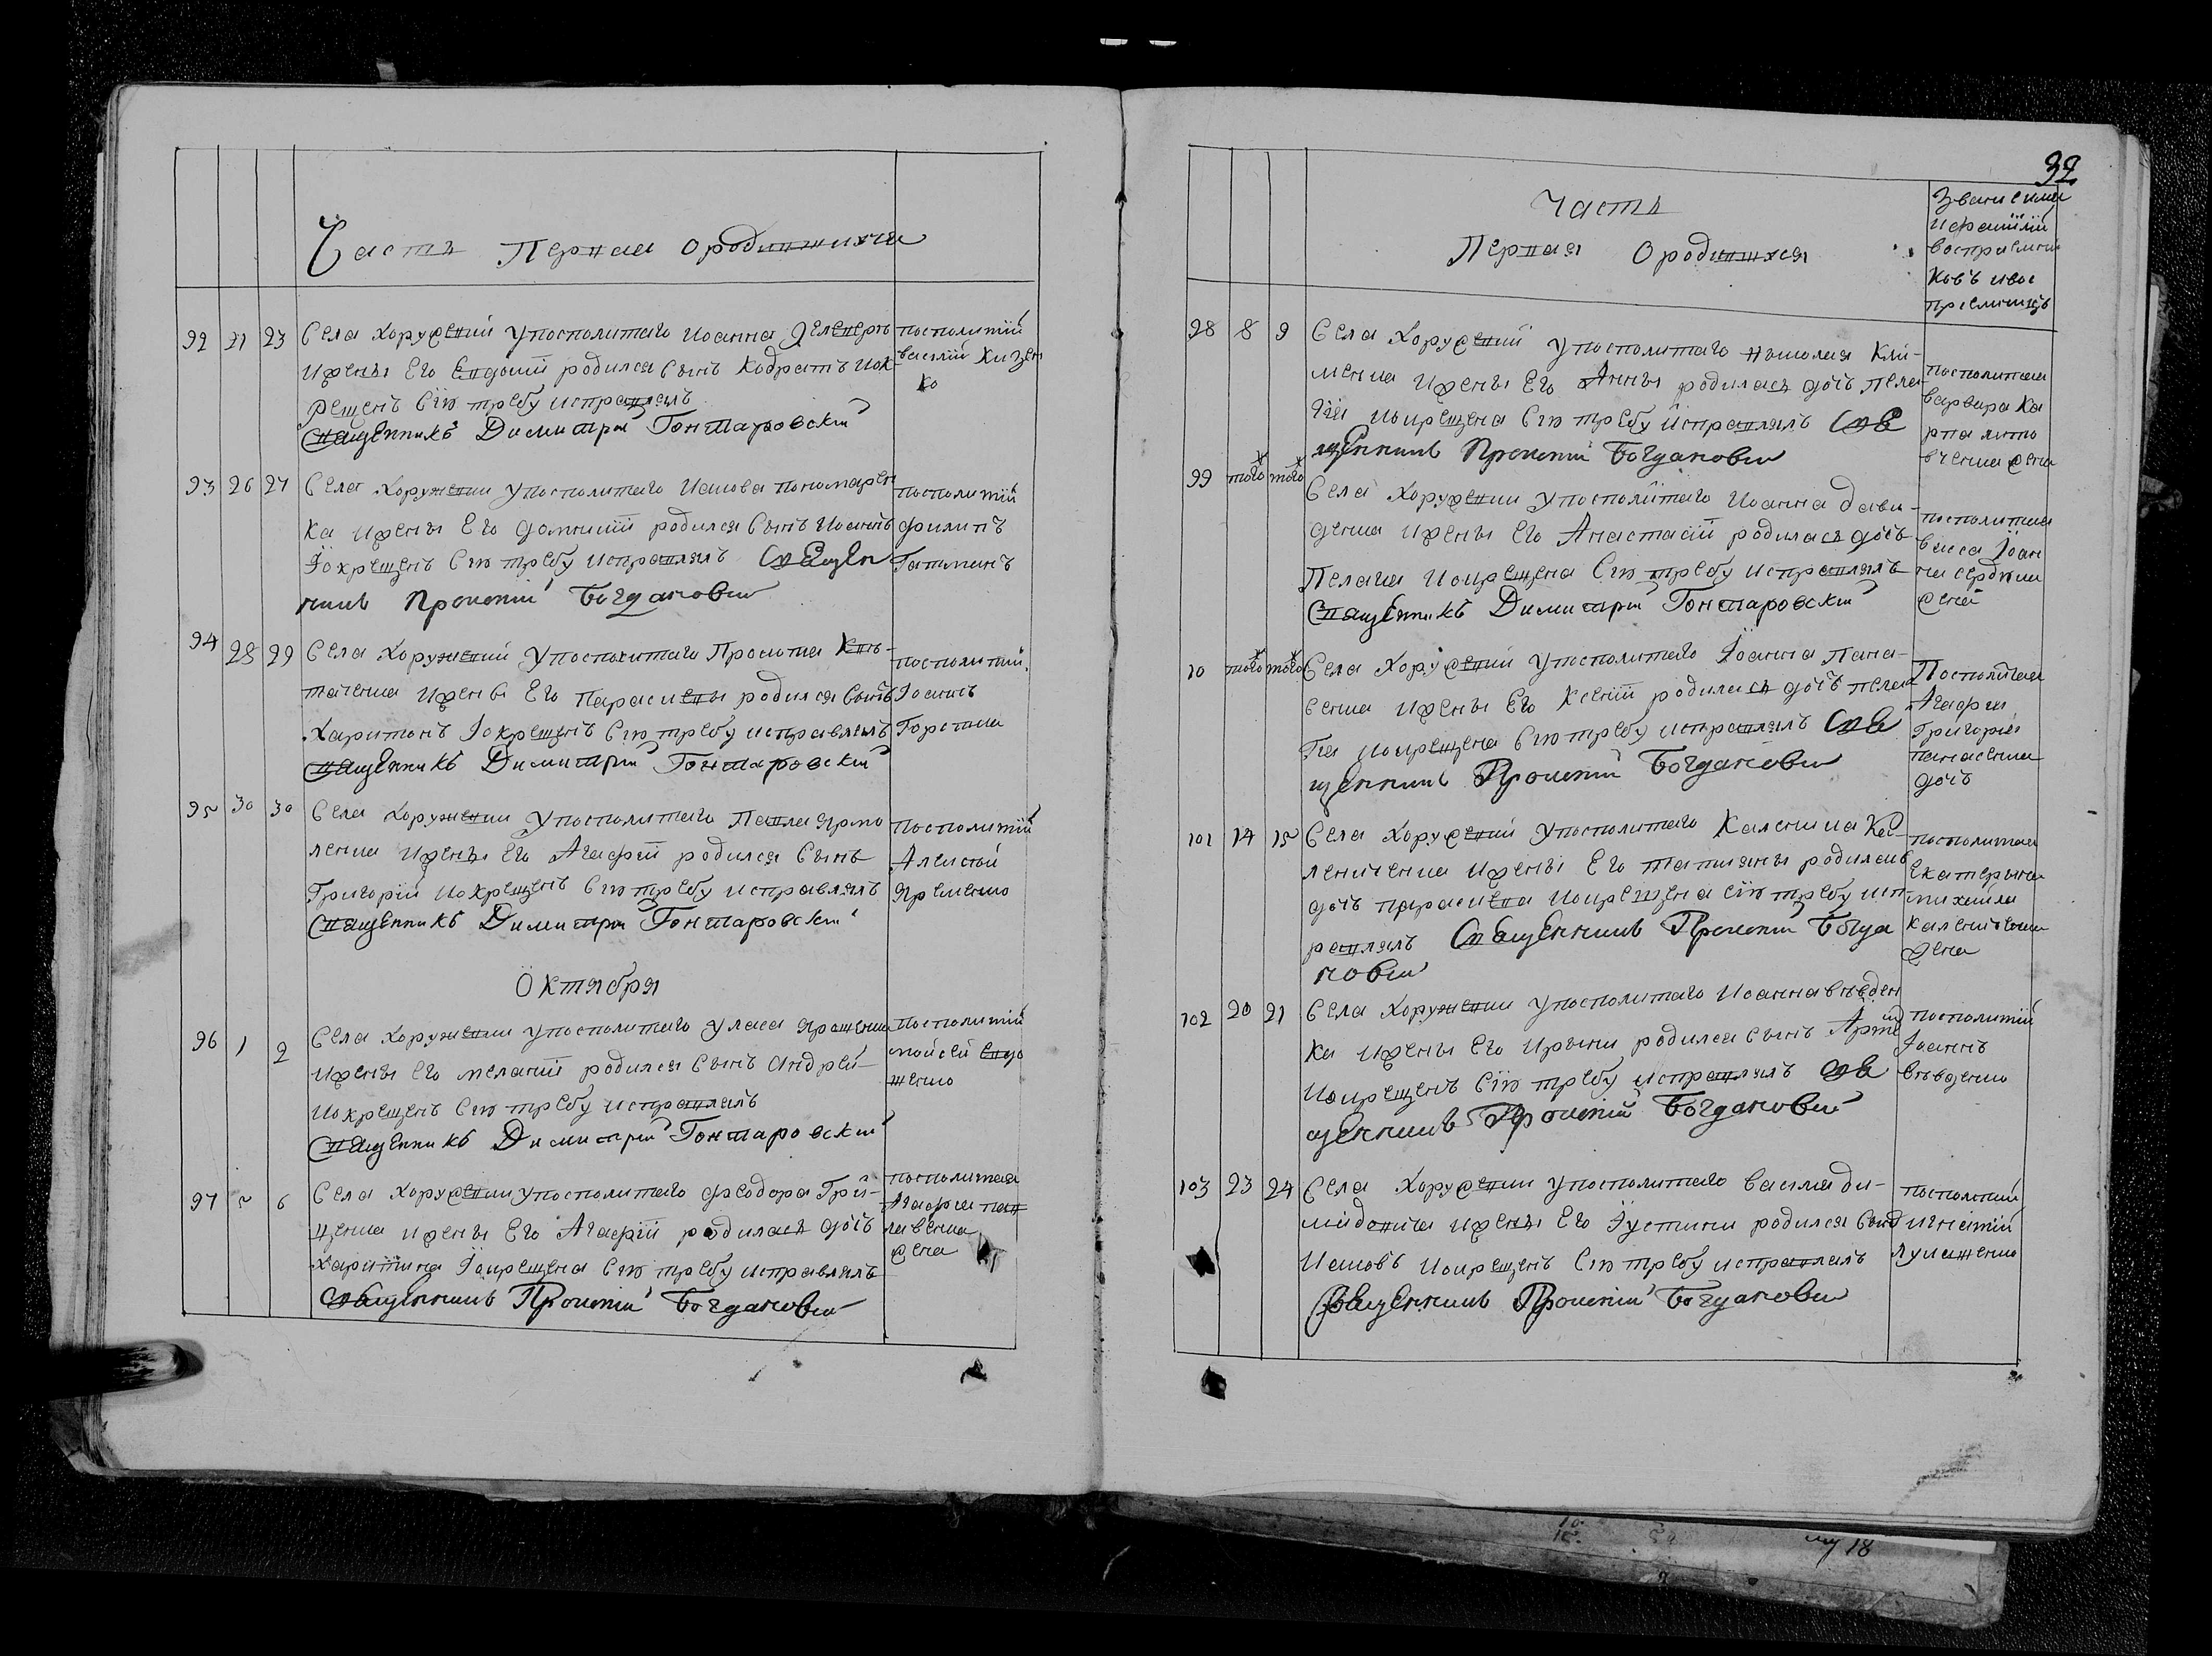 Часть Первая о родившихся
92 21 23 Села Хоружевки у посполитаго Иоанна
и жены его Евдокїи родился сынъ Кодратъ и ок-
рещенъ сїю требу исправлялъ
Священникъ Димитрїй Гонтаровскїй
посполитїй
василїй Кизен
ко
93 26 27 Села Хоружевки у посполитаго Иакова пономарен
ка и жены его домникїи родился сынъ Иоаннъ
Їокрещенъ сїю требу исправлялъ Священ
никъ Прокопїй Богдановичь
посполитїй
филипъ
Гатманъ
94 28 29 Села Хоружевки у посполитаго Прокопа
и жены его Параскевы родился сынъ
Харитонъ Їокрещенъ сїю требу исправлялъ
Священникъ Димитрїй Гонтаровскїй
посполитїй
Їоаннъ
95 30 30 Села Хоружевки у посполитаго Павла Ярмо
ленка и жены его Агафїи родился сынъ
Григорїй и окрещенъ сїю требу исправлялъ
Священникъ Димитрїй Гонтаровскїй
посполитїй
Алексѣй
Яременко
Октября
96 1 2 Села Хоружевки у посполитаго Уласа Ярошенка
и жены его меланїи родился сынъ Андрей
и окрещенъ сїю требу исправлялъ
Священникъ Димитрїй Гонтаровскїй
посполитїй
мойсей Евдо
женко
97 5 6 Села Хоружевки у посполитаго Феодора Гри-
ценка и жены его Агафїи родилася дочь
харитина Їокрещена сїю требу исправлялъ
священникъ Прокопїй Богдановичь
посполитая
Агафия пав
ленка
жена
32
Часть
Первая о родившихся
Званїе имя
и фамїлїй
воспрїемни
ковъ и вос
прїемницъ
98 8 9 Села Хоружевки у посполитаго николая Кли-
менка и жены его Анны родилася дочь пела
гїя и окрещена сїю требу исправлялъ Свя
щенникъ Прокопїй Богдановичь
посполитая
варвара Ка
рпа лито
вченка жена
99 того ж того ж Села Хоружевки у посполитаго Иоанна дави-
денка и жены его Анастасїи родилася дочь
Пелагия и окрещена сїю требу исправлялъ
Священникъ Димитрїй Гонтаровскїй
посполитая
васса Їоан
на сердюка
жена
10 того ж того ж Села Хоружевки у посполитаго Їоанна Пана-
сенка и жены его Ксенїи родилася дочь пела
гия и окрещена сїю требу исправлялъ Свя
щенникъ Прокопїй Богдановичь
Посполитая
Агафия
Григорїя
панасенка
дочь
101 14 15 Села Хоружевки у посполитаго Каленика Ка-
лениченка и жены его татияны родилась
дочь параскева и окрещена сїю требу исп-
равлялъ Священникъ Прокопїй Богда
новичь
посполитая
Екатерина
михаила
калениченка
жена
102 20 21 Села Хоружевки у посполитаго Иоанна
ка и жены его Ирыны родился сынъ Артемїй
и окрещенъ сїю требу исправлялъ свя
щенникъ Прокопїй Богдановичь
посполитїй
Їоаннъ
103 23 24 Села Хоружевки у посполитаго василя ди-
мидовича и жены его Їустини родился сынъ
Иаковъ и окрещенъ сїю требу исправлялъ
Священникъ Прокопїй Богдановичь
посполитїй
игнатїй
лукашенко
18